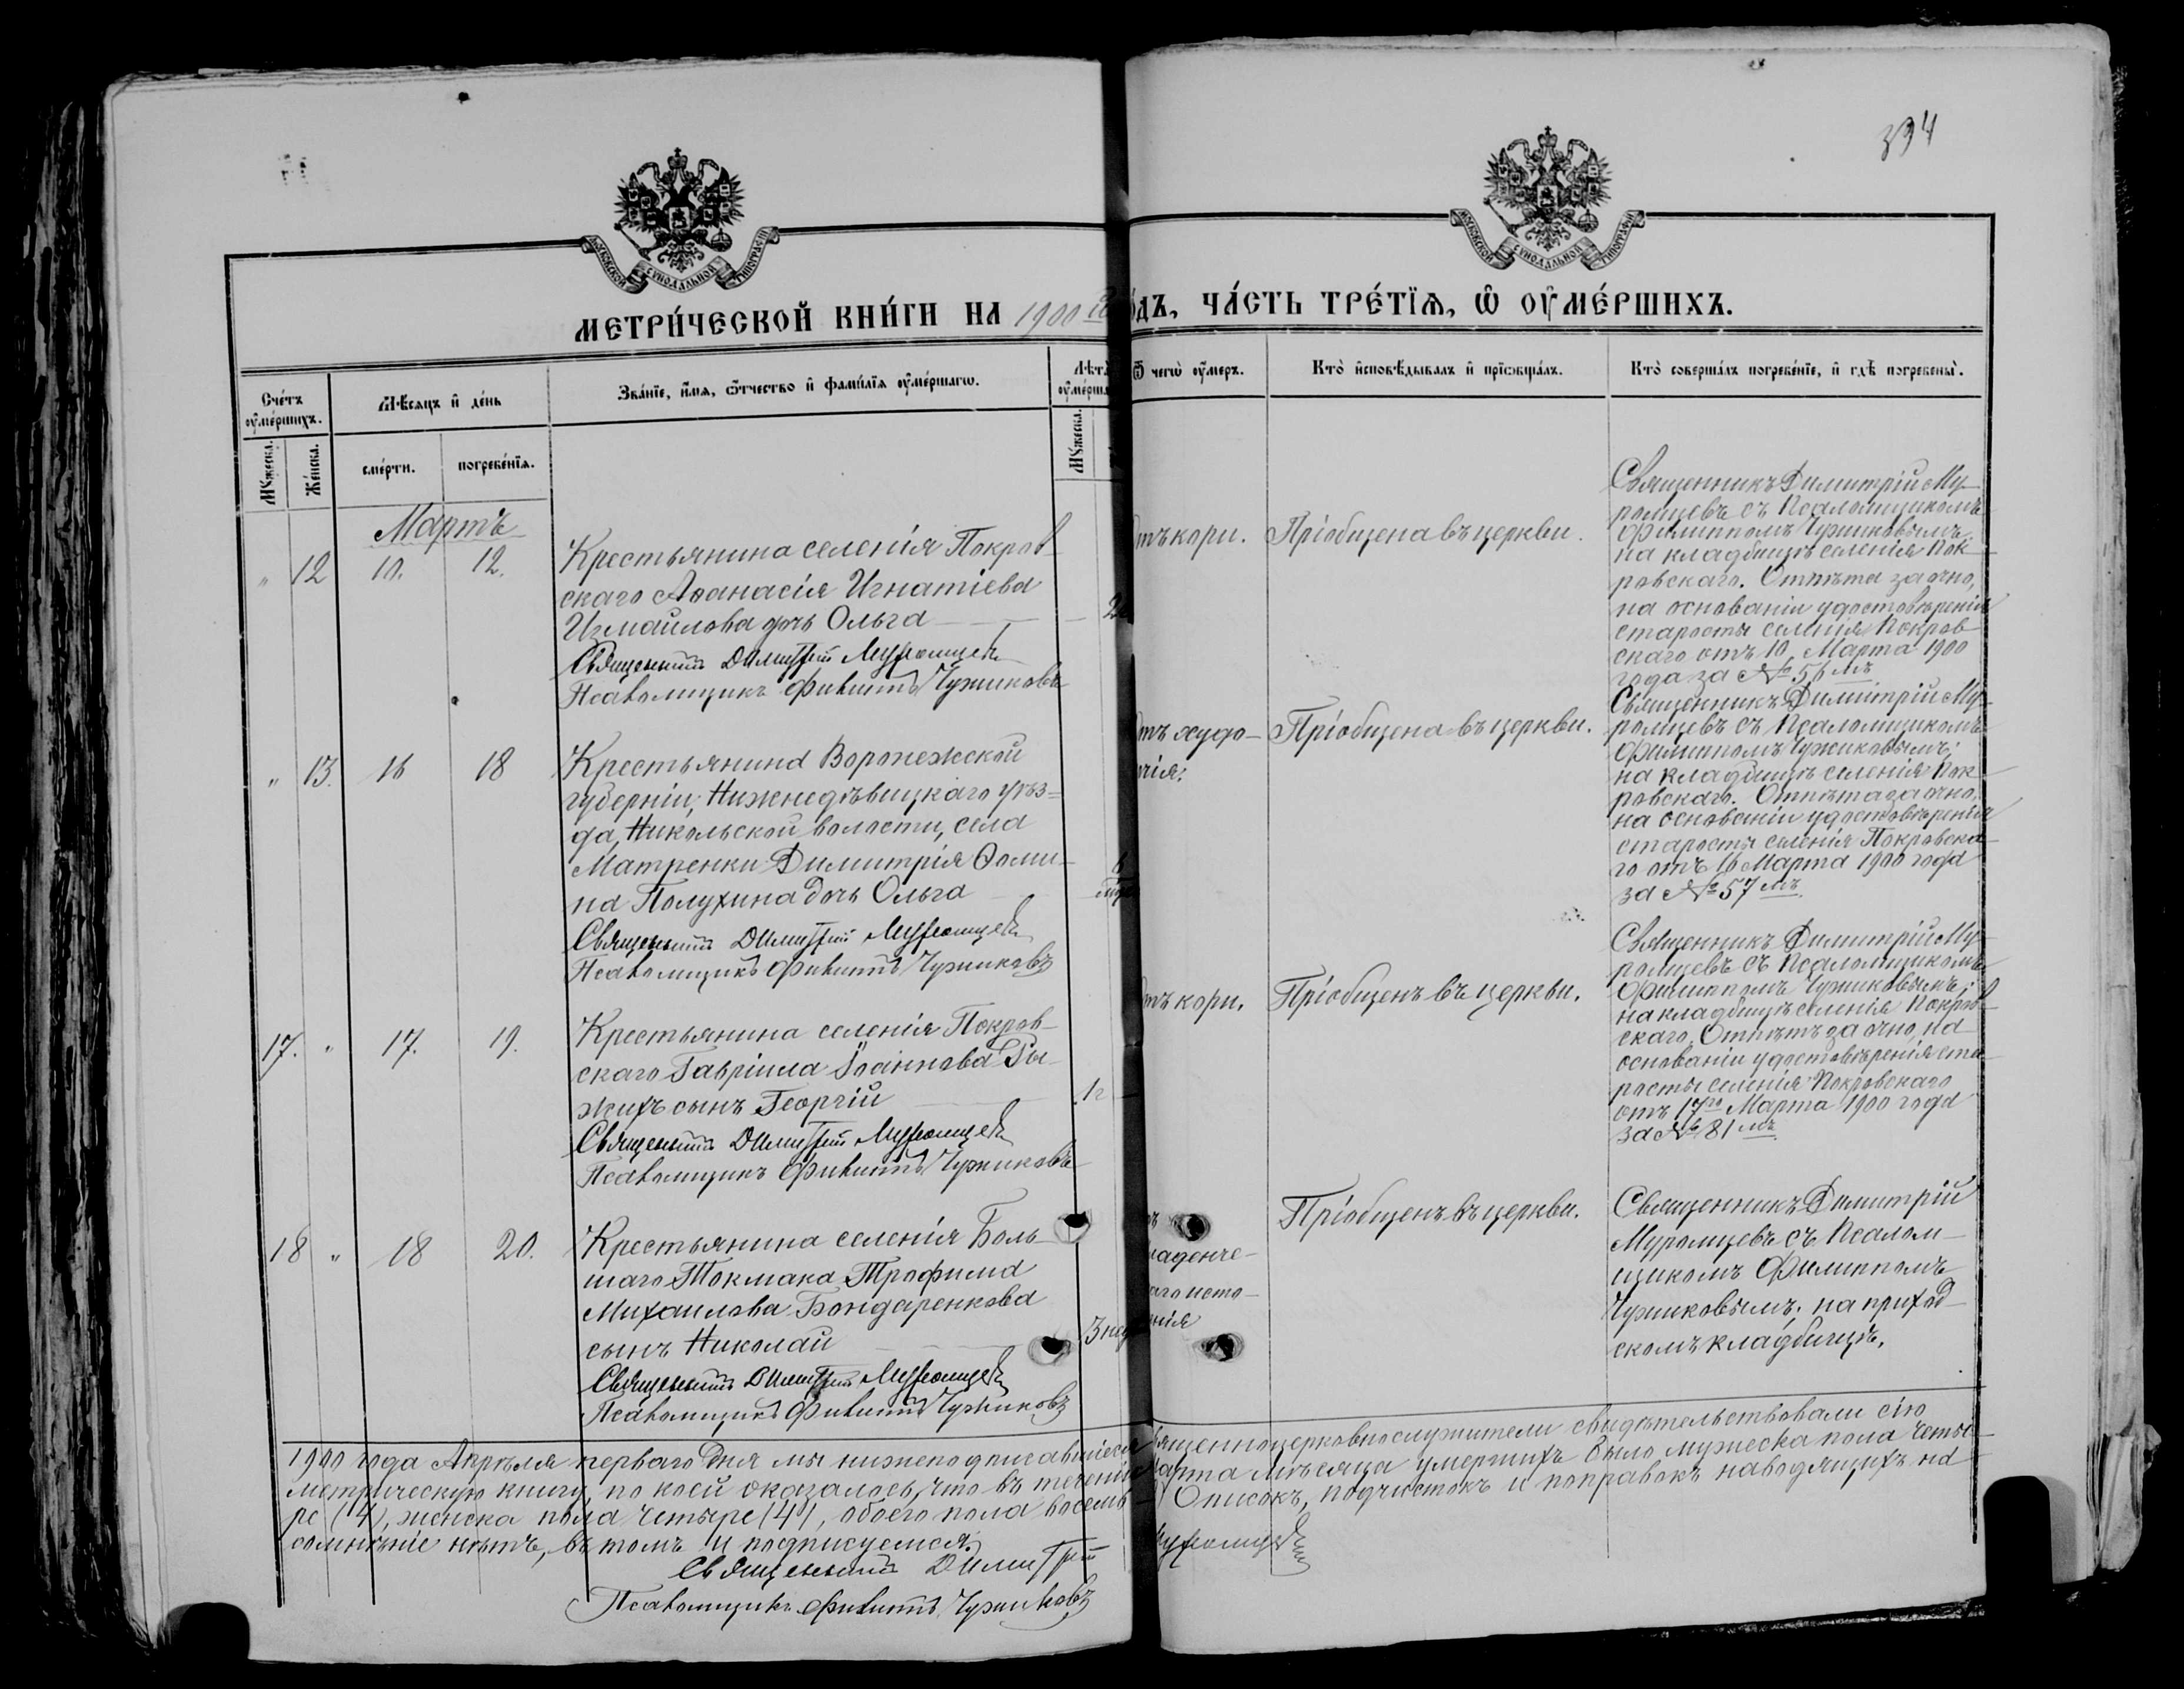 394
МОСКОВСКОЙ СѴНОДАЛЬНОЙ ТИПОГРАФІИ
МОСКОВСКОЙ СѴНОДАЛЬНОЙ ТИПОГРАФІИ
МЕТРИ́ЧЕСКОЙ КНИ́ГИ НА 1900 го
О́ДЪ, ЧА́СТЬ ТРЕ́ТЇѦ, Ѡ҆ ОУ҆МЕ́РШИХЪ.
Сче́тъ оу҆ме́ршихъ.
Мꙋ́жеска.
Же́нска.
Мѣ́сѧцъ и҆ де́нь
сме́рти.
погребе́нїѧ.
Зва́нїе, и҆́мѧ, ѻ҆́тчество и҆ фами́лїѧ оу҆ме́ршагѡ.
Лѣ́та
оу҆ме́рша
Мꙋ́жеска.
Ѿ чегѡ̀ оу҆́меръ.
Кто̀ и҆сповѣ́дывалъ и҆ прїѡбща́лъ.
Кто̀ соверша́лъ погребе́нїе, и҆ гдѣ̀ погребены̀.
Мартъ
" 12 10. 12.
Крестьянина селенія Покров-
скаго Аѳанасія Игнатіева
Измаилова дочь Ольга
Священникъ Димитрій Муромцевъ
Псаломщикъ Филиппъ Чужиковъ
отъ кори.
Пріобщена въ церкви.
Священникъ Димитрій Му-
ромцевъ съ Псаломщикомъ
Филиппомъ Чужиковымъ,
на кладбищѣ селенія Пок-
ровскаго. Отпѣта заочно,
на основаніи удостовѣренія
старосты селенія Покров-
скаго отъ 10 Марта 1900
года за № 56 мъ
" 13. 16 18
Крестьянина Воронежской
губерніи, Нижнедѣвицкаго уѣз-
да, Никольской волости, села
Матренки Димитрія Ѳоми-
на Полухина дочь Ольга
Священникъ Димитрій Муромцевъ
Псаломщикъ Филиппъ Чужиковъ
6
отъ худо-
чія.
Пріобщена въ церкви.
Священникъ Димитрій Му-
ромцевъ съ Псаломщикомъ
Филиппомъ Чужиковымъ;
на кладбищѣ селенія Пок-
ровскаго. Отпѣта заочно,
на основаніи удостовѣренія
старосты селенія Покровска-
го отъ 16 Марта 1900 года
за № 57 мъ
17. " 17. 19.
Крестьянина селенія Покров-
скаго Гавріила Іоаннова Ры-
жихъ сынъ Георгій
1г
Священникъ Димитрій Муромцевъ
Псаломщикъ Филиппъ Чужиковъ
отъ кори.
Пріобщенъ въ церкви.
Священникъ Димитрій Му-
ромцевъ съ Псаломщикомъ
Филиппомъ Чужиковымъ;
на кладбищѣ селенія Покров-
скаго. Отпѣтъ заочно, на
основаніи удостовѣренія ста-
росты селенія Покровскаго
отъ 17го Марта 1900 года
за № 81 мъ
18 " 18 20.
Крестьянина селенія Боль-
шаго Токмака Трофима
Михаилова Бондаренкова
сынъ Николай
3 нед
Священникъ Димитрій Муромцевъ
Псаломщикъ Филиппъ Чужиковъ
ъ
ладенче-
аго исто-
нія
Пріобщенъ въ церкви.
Священникъ Димитрій
Муромцевъ съ Псалом-
щикомъ Филиппомъ
Чужиковымъ; на приход-
скомъ кладбищѣ.
1900 года Апрѣля перваго дня мы нижеподписавшіеся священноцерковнослужители свидѣтельствовали сію
метрическую книгу, по коей оказалось, что въ теченіи Марта мѣсяца умершихъ было мужеска пола четы-
ре (4), женска пола четыре (4), обоего пола восемь Описокъ, подчистокъ и поправокъ наводящихъ на
сомнѣніе нѣтъ, въ томъ и подписуемся.
Священникъ Димитрій Муромцевъ
Псаломщикъ Филиппъ Чужиковъ